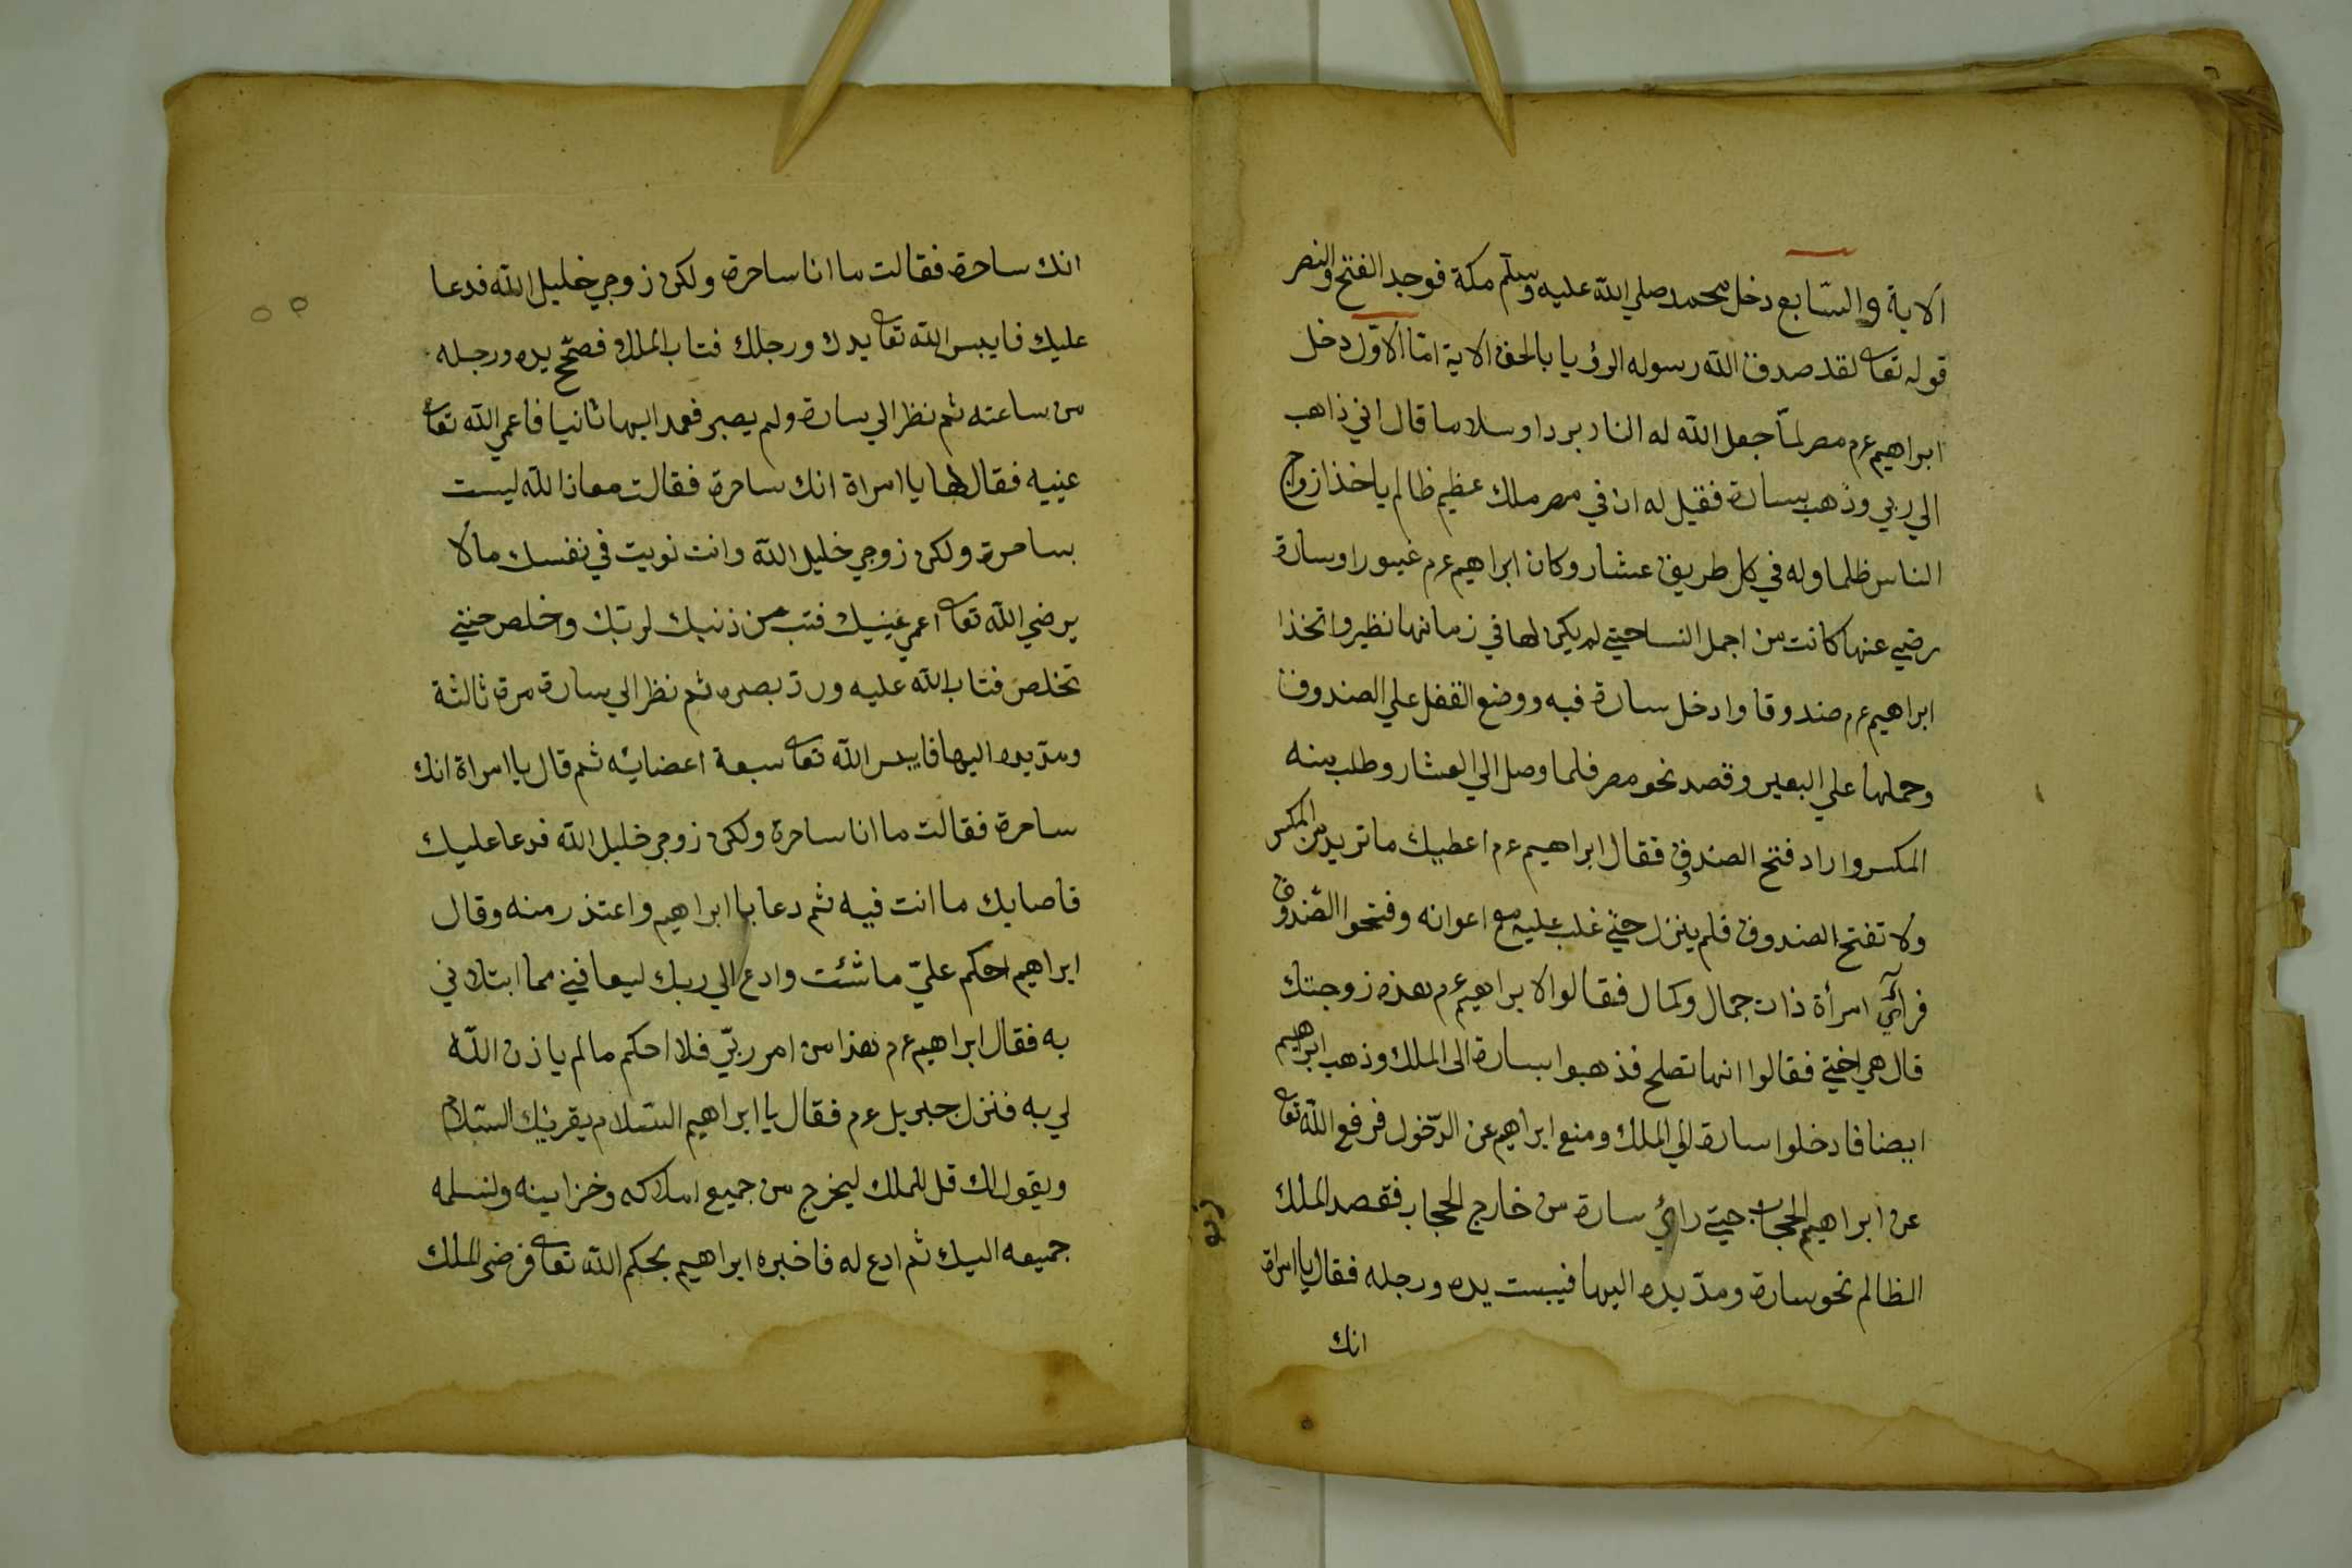 الاية والسّابع دخل محمد صلي الله عليه وسلّم مكة فوجد الفتح والنصر
قوله تعا لقد صدق الله رسوله الرؤيا بالحق الاية امّا الاوّل دخل
ابراهيم عم مصر لمّا جعل الله له النار بردا وسلاما قال اني ذاهب
الي ربي وذهب بسارة فقيل له ان في مصر ملك عظيم ظالم ياخذ ازواج
الناس ظلما وله في كل طريق عشار وكان ابراهيم عم غيورا وسارة
رضي عنها كانت من اجمل النسا حتي لم يكن لها في زمانها نظير واتخذا
ابراهيم عم صندوقا وادخل سارة فيه ووضع القفل علي الصندوق
وحملها علي البعير وقصد نحو مصر فلما وصل الي العشار وطلب منه
المكس واراد فتح الصندوق فقال ابراهيم عم اعطيك ما تريد من المكس
ولا تفتح الصندوق فلم ينزل حتي غلب عليه مع اعوانه وفتحوا الصّندوق
فرائي امرأة ذات جمال وكمال فقالوا لابراهيم عم هذه زوجتك
قال هي اختي فقالوا انها تصلح فذهبوا بسارة الى الملك وذهب ابراهيم
ايضا فادخلوا سارة الي الملك ومنع ابراهيم عن الدّخول فرفع الله تعا
عن ابراهيم الحجاب حتي رائي سارة من خارج الحجاب فقصد الملك
الظالم نحو سارة ومدّ يده اليها فيبست يده ورجله فقال يا امراة
انك
انك ساحرة فقالت ما انا ساحرة ولكن زوجي خليل الله فدعا
عليك فايبس الله تعا يدك ورجلك فتاب الملك فصحّ يده ورجله
من ساعته ثم نظر الي سارة ولم يصبر فعمد اليها ثانيا فاعمي الله تعا
عينيه فقال لها يا امراة انك ساحرة فقالت معاذ الله ليست
بساحرة ولكن زوجي خليل الله وانت نويت في نفسك مالا
يرضي الله تعا اعمي عينيك فتب من ذنبك لربّك واخلص حتي
تخلص فتاب الله عليه وردّ بصره ثم نظر الي سارة مرة ثالثة
ومدّ يده اليها فايبس الله تعا سبعة اعضائه ثم قال يا امراة انك
ساحرة فقالت ما انا ساحرة ولكن زوجي خليل الله فدعا عليك
فاصابك ما انت فيه ثم دعا با ابراهيم واعتذر منه وقال
ابراهيم احكم عليّ ما شئت وادع الي ربك ليعافيني مما ابتلاني
به فقال ابراهيم عم هذا من امر ربّي فلا احكم ما لم ياذن الله
لي به فنزل جبريل عم فقال يا ابراهيم السّلام يقرئك السّلام
ويقول لك قل للملك ليخرج من جميع املاكه وخزاينه ولنسلمه
جميعه اليك ثم ادع له فاخبره ابراهيم بحكم الله تعا فرضى الملك